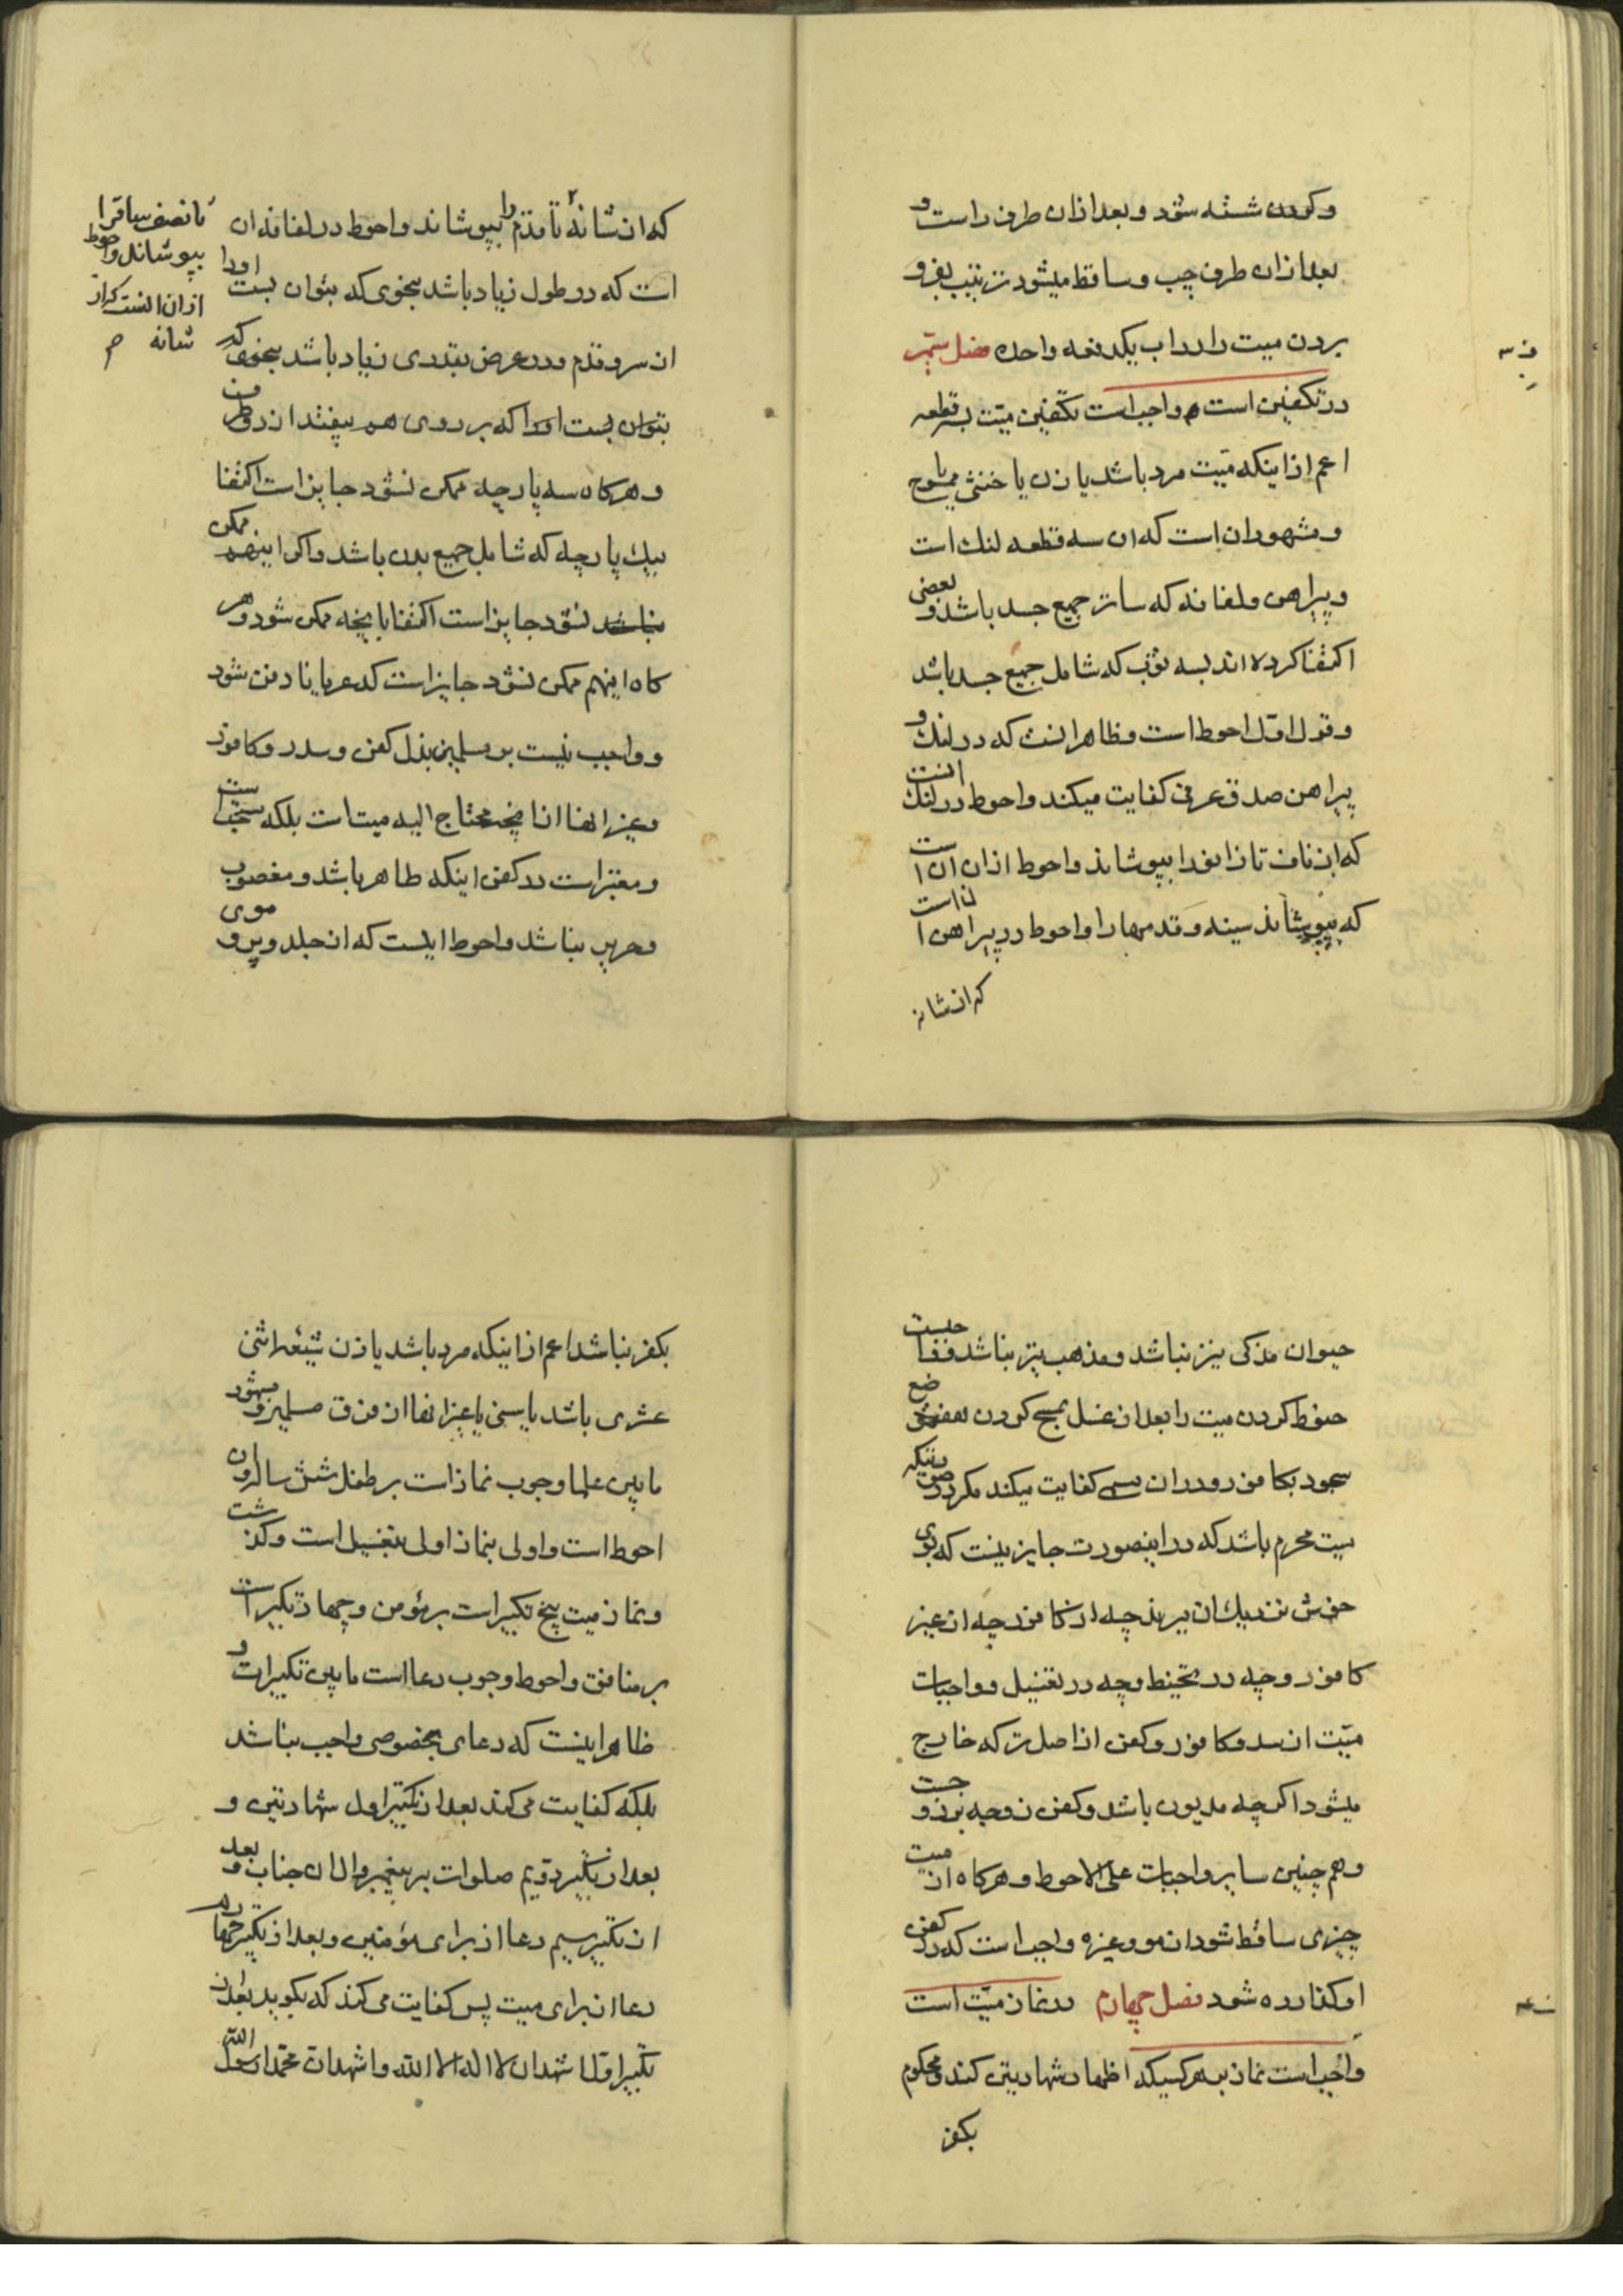 وکردن شسته شود و بعد ازان طرف راست و
بعد ازان طرف چپ و ساقط میشود ترتیب بفرو
بردن میت را در اب یکدفعه واحده فصل سیم
در تکفین است و واجب است تکفین میّت بسه قطعه
اعم از اینکه میّت مرد باشد یا زن یا خنثی یا ممسوح
و مشهور ان است که ان سه قطعه لنك است
و پیراهن و لفافه که ساتر جمیع جسد باشد و بعضی
اکتفا کرده اند بسه ثوب که شامل جمیع جسد باشد
و قول اوّل احوط است و ظاهر انست که در لنك و
پیراهن صدق عرفی کفایت میکند و احوط در لنك انست
که از ناف تا زانو را بپوشاند و احوط ازان ان است
که بپوشاند سینه و قدمها را و احوط در پیراهن ان است
که از شانه
که از شانه تا قدم را بپوشاند و احوط در لفافه ان
است که در طول زیاد باشد بنحوی که بتوان بست اورا
از سر و قدم و در عرض بقدری زیاد باشد بنحوی که
بتوان بست اورا که بر روی هم بیفتد از دو طرف
و هرکاه سه پارچه ممکن نشود جایز است اکتفا
بیك پارچه که شامل جمیع بدن باشد و اکر اینهم ممکن
نباشد نشود جایز است اکتفا بانچه ممکن شود و هر
کاه اینهم ممکن نشود جایز است که عریانا دفن شود
و واجب نیست بر مسلمین بذل کفن و سدر و کافور
و غیر انها از انچه محتاج الیه میت است بلکه مستحب است
و معتبر است در کفن اینکه طاهر باشد و مغصوب
و حریر نباشد و احوط اینست که از جلد و پر و موی
تا نصف ساق را
بپوشاند و احوط
ازان انست که از
شانه م
حیوان مذکی نیز نباشد و مذهب نیز نباشد و واجبست
حنوط کردن میت را بعد از غسل بمسح کردن مواضع
سجود بکافور و دران مسمی کفایت میکند مکر در صورتیکه
میت محرم باشد که در اینصورت جایز نیست که بوی
خوش نزدیك ان برند چه از کافور چه از غیر
کافور و چه در تحنیط و چه در تغسیل و واجبات
میّت از سدر و کافور و کفن از اصل ترکه خارج
میشود اکرچه مدیون باشد و کفن زوجه بر زوجست
و هم چنین سایر واجبات علی الاحوط و هرکاه از میت
چیزی ساقط شود از مو و غیره واجب است که در کفن
او کذارده شود فصل چهارم در نماز میّت است
واجب است نماز بر هر کسیکه اظهار شهادتین کند و محکوم
بکفر
بکفر نباشد اعم از اینکه مرد باشد یا زن شیعه اثنی
عشری باشد یا سنی یا غیر انها از فرق مسلمین و مشهور
مابین علما وجوب نماز است بر طفل شش ساله و ان
احوط است و اولی بنماز اولی بتغسیل است و کذشت
و نماز میت پنج تکبیر است بر مؤمن و چهار تکبیر است
بر منافق و احوط وجوب دعا است مابین تکبیرات و
ظاهر اینست که دعای بخصوصی واجب نباشد
بلکه کفایت می کند بعد از تکبیر اول شهادتین و
بعد از تکبیر دویم صلوات بر پیغمبر و ال ان جناب و بعد
از تکبیر سیم دعا از برای مؤمنین و بعد از تکبیر چهارم
دعا از برای میت پس کفایت می کند که بکوید بعد از
تکبیر اوّل اشهد ان لا اله الا الله و اشهد ان محمّدا رسول الله